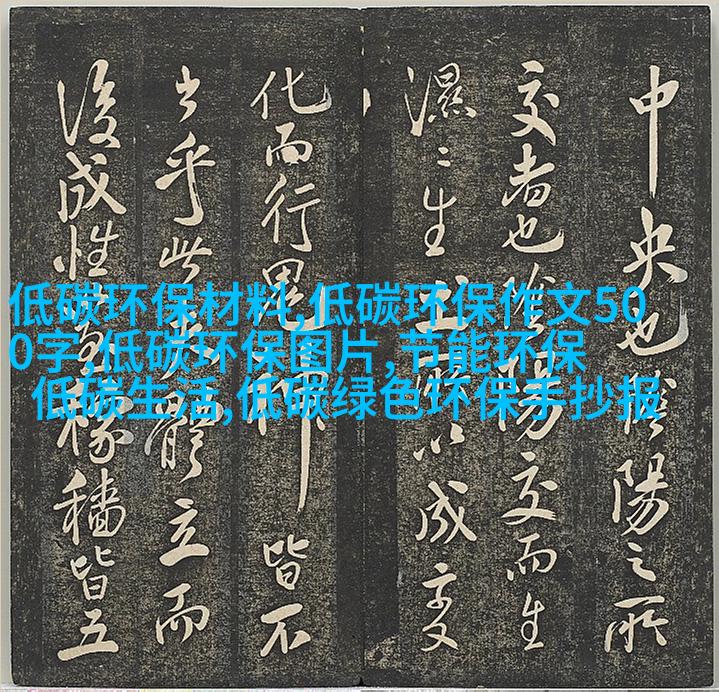 低碳环保材料,低碳环保作文50
0字,低碳环保图片,节能环保
低碳生活,低碳绿色环保手抄报
中央也陰陽之所
交者也陰陽交而生
濕〻生以成
化而行鬼神皆不
乎此體立而
後成性稼穡皆五